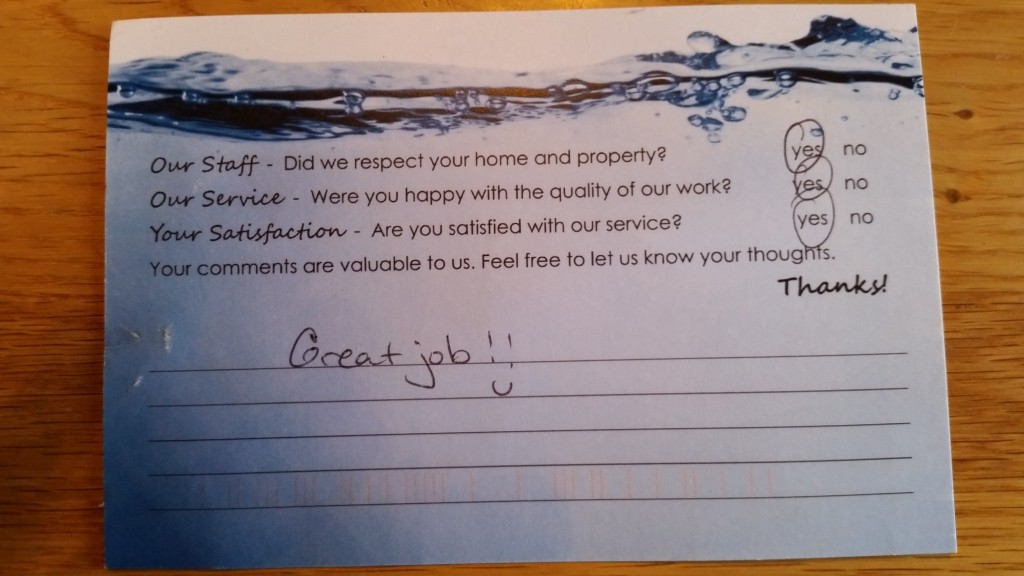 Our Staff - Did we respect your home and property? yes no
Our Service - Were you happy with the quality of our work? yes no
Your Satisfaction - Are you satisfied with our service? yes no
Your comments are valuable to us. Feel free to let us know your thoughts.
Thanks!
Great job!!